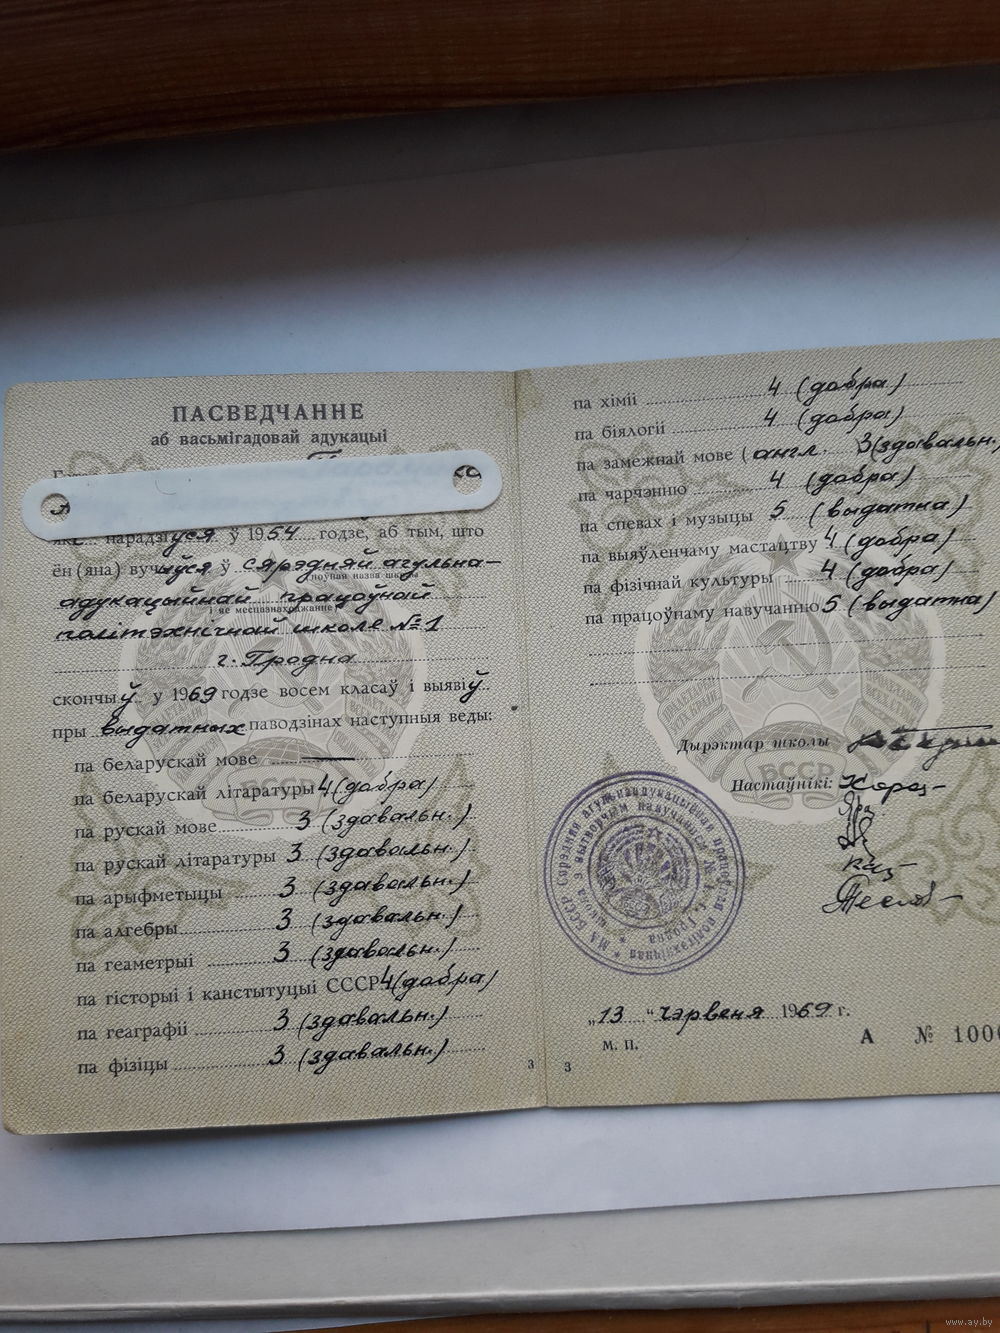 ПАСВЕДЧАННЕ
аб васьмігадовай адукацыі
нарадзіўся ў 1954 годзе, аб тым, што
ён (яна) вучыўся ў сярэдняй агульна-
поўная назва школы
адукацыйнай працоўнай
і яе месцазнаходжанне
політэхнічнай школе №1
г. Гродна
скончыў у 1969 годзе восем класаў і выявіў
пры выдатных паводзінах наступныя веды:
па беларускай мове —
па беларускай літаратуры 4 (добра)
па рускай мове 3 (здавальн.)
па рускай літаратуры 3 (здавальн.)
па арыфметыцы 3 (здавальн.)
па алгебры 3 (здавальн.)
па геаметрыі 3 (здавальн.)
па гісторыі і канстытуцыі СССР 4 (добра)
па геаграфіі 3 (здавальн.)
па фізіцы 3 (здавальн.)
3
па хіміі 4 (добра)
па біялогіі 4 (добра)
па замежнай мове (англ. 3 (здавальн.)
па чарчэнню 4 (добра)
па спевах і музыцы 5 (выдатна)
па выяўленчаму мастацтву 4 (добра)
па фізічнай культуры 4 (добра)
па працоўнаму навучанню 5 (выдатна)
Дырэктар школы
Настаўнікі:
БССР
БССР
„13“ чэрвеня 1969 г.
М. П.
А № 1000
3
www.ay.by